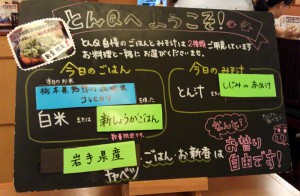 とんQへ ようこそ!
とんQ自慢のごはんとみそ汁は2種類ご用意しています
お料理と一緒にお選びくださいませ。
今日のごはん
今日のお米
栃木県
コシヒカリ
を使った
白米 または 新しょうがごはん
数量限定です。
岩手県産
キャベツ
今日のみそ汁
とん汁 または しじみの赤出汁
なんと!
ごはん・お新香は
お替り
自由です!